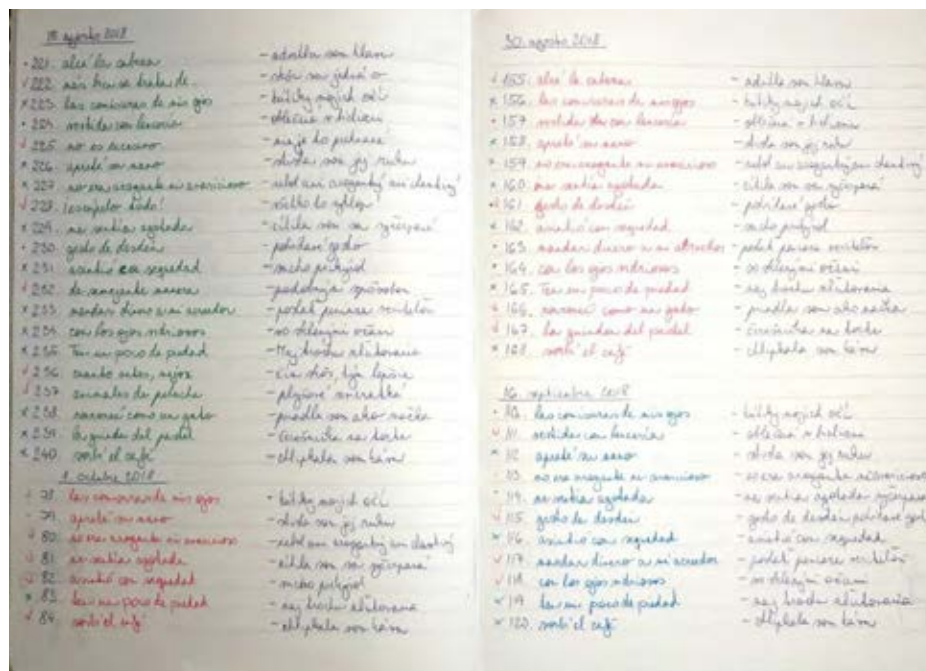 18. agosto 2018
221. alcé la cabeza - zdvihla som hlavu
222. más bien se trata de - skôr sa jedná o
223. las comisuras de mis ojos - kútiky mojich očí
224. vestida con lencería
225. no es necesario - nie je to potrebné
226. apreté su mano - stisla som jej ruku
227. no era arrogante ni avaricioso - nebol ani arogantný ani
228. ¡escúpelo todo!
229. me sentía agotada - cítila som sa vyčerpaná
230. gesto de desdén - gesto
231. asintió con sequedad - sucho prikývol
232. de semejante manera - podobným spôsobom
233. mandar dinero a mi acreedor - poslať peniaze veriteľovi
234. con los ojos vidriosos - so sklenými očami
235. Ten un poco de piedad - Maj trochu zľutovania
236. cuanto antes, mejor - čím skôr, tým lepšie
237. animales de peluche - plyšové zvieratká
238. ronroneé como un gato - priadla som ako mačka
239. la guinda del pastel - čerešnička na torte
240. sorbí el café - chlípkala som kávu
1. octubre 2018
78. las comisuras de mis ojos - kútiky mojich očí
79. apreté su mano - stisla som jej ruku
80. no era arrogante ni avaricioso - nebol ani arogantný ani
81. me sentía agotada - cítila som sa vyčerpaná
82. asintió con sequedad - sucho prikývol
83. ten un poco de piedad - maj trochu zľutovania
84. sorbí el café - chlípkala som kávu
30. agosto 2018
155. alcé la cabeza - zdvihla som hlavu
156. las comisuras de mis ojos - kútiky mojich očí
157. vestida con lencería
158. apreté su mano - stisla som jej ruku
159. no era arrogante ni avaricioso - nebol ani arogantný ani
160. me sentía agotada - cítila som sa vyčerpaná
161. gesto de desdén - gesto
162. asintió con sequedad - sucho prikývol
163. mandar dinero a mi acreedor - poslať peniaze veriteľovi
164. con los ojos vidriosos - so sklenými očami
165. Ten un poco de piedad - maj trochu zľutovania
166. ronroneé como un gato - priadla som ako mačka
167. la guinda del pastel - čerešnička na torte
168. sorbí el café - chlípkala som kávu
16. septiembre 2018
110. las comisuras de mis ojos - kútiky mojich očí
111. vestida con lencería
112. apreté su mano - stisla som jej ruku
113. no era arrogante ni avaricioso - no era arrogante ni avaricioso
114. me sentía agotada - me sentía agotada
115. gesto de desdén - gesto de desdén
116. asintió con sequedad - asintió con sequedad
117. mandar dinero a mi acreedor - poslať peniaze veriteľovi
118. con los ojos vidriosos - so sklenými očami
119. ten un poco de piedad - maj trochu zľutovania
120. sorbí el café - chlípkala som kávu